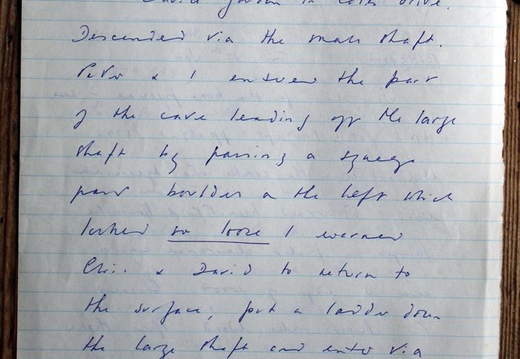 David Gordon in
Descended via the small shaft.
Peter & I entered the part
of the cave leading off the large
shaft by passing a squeeze
past boulder on the left which
looked so loose I warned
Chris & David to return to
the surface, put a ladder down
the large shaft and enter via